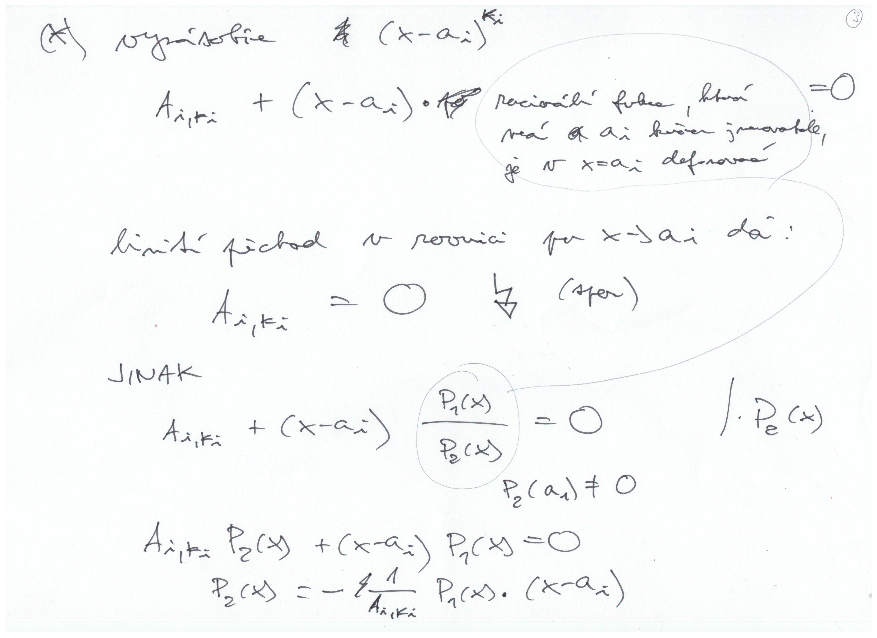 3
(*) vynásobíme (x-a_i)^{k_i}
A_{i,k_i} + (x-a_i) · racionální funkce, která = 0
nemá a_i jmenovatele,
je v x=a_i definovaná
limitní přechod v rovnici pro x→a_i dá:
A_{i,k_i} = 0 ↯ (spor)
JINAK
A_{i,k_i} + (x-a_i) P_1(x)/P_2(x) = 0 /· P_2(x)
P_2(a_i) ≠ 0
A_{i,k_i} P_2(x) + (x-a_i) P_1(x) = 0
P_2(x) = - 1/A_{i,k_i} P_1(x) · (x-a_i)